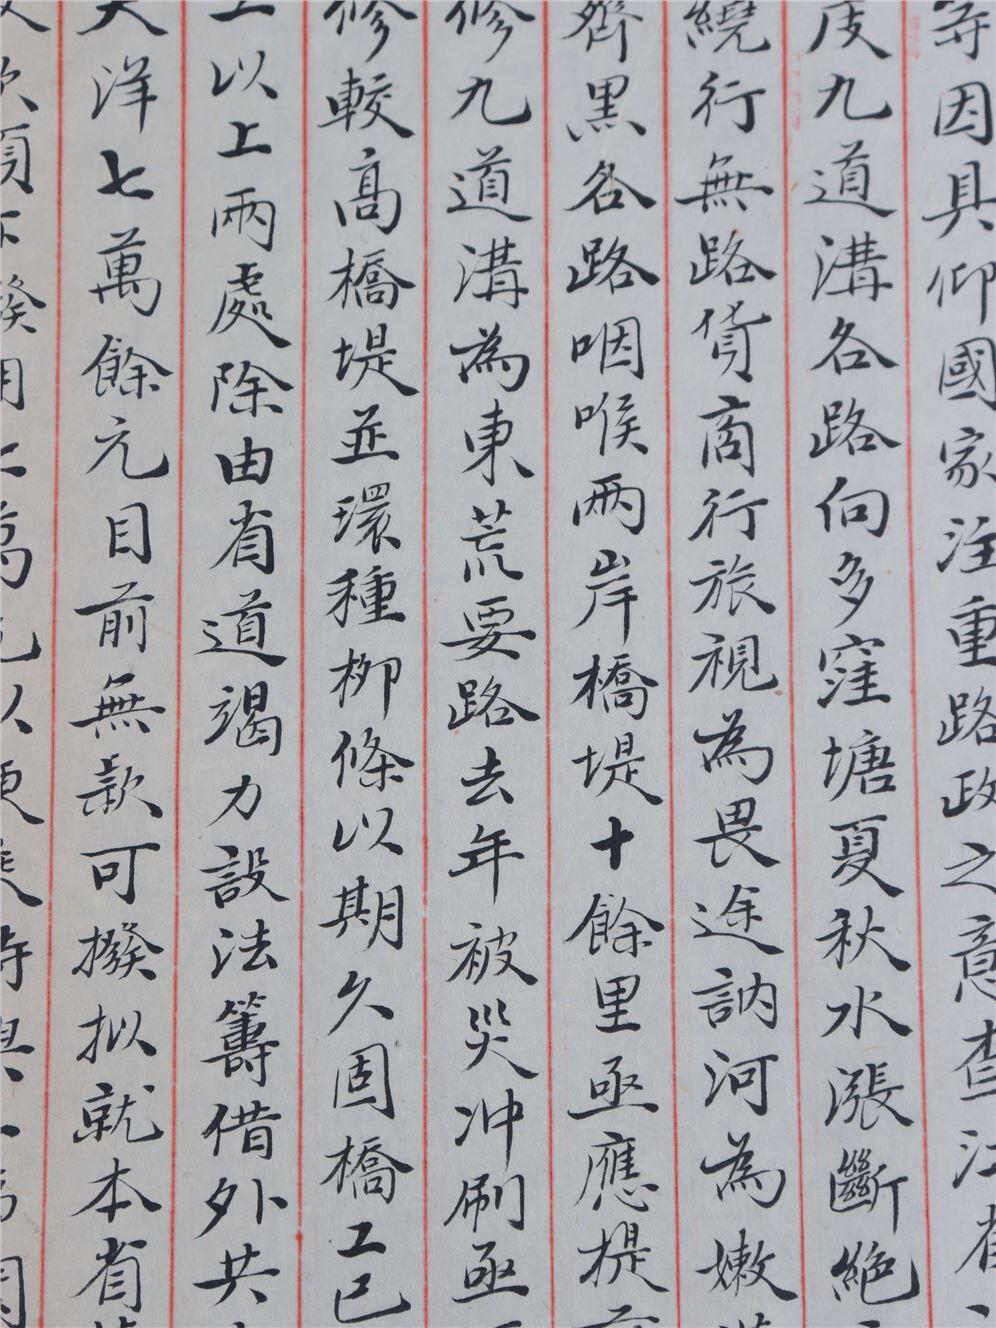 等因具仰國家注重路政之意查江省
度九道溝各路向多窪塘夏秋水漲斷絕
繞行無路貨商行旅視為畏途訥河為嫩
齊黑各路咽喉兩岸橋堤十餘里亟應提
修九道溝為東荒要路去年被災冲刷亟
修較高橋堤並環種柳條以期久固橋工已
工以上兩處除由省道竭力設法籌借外共
大洋七萬餘元目前無款可撥拟就本省